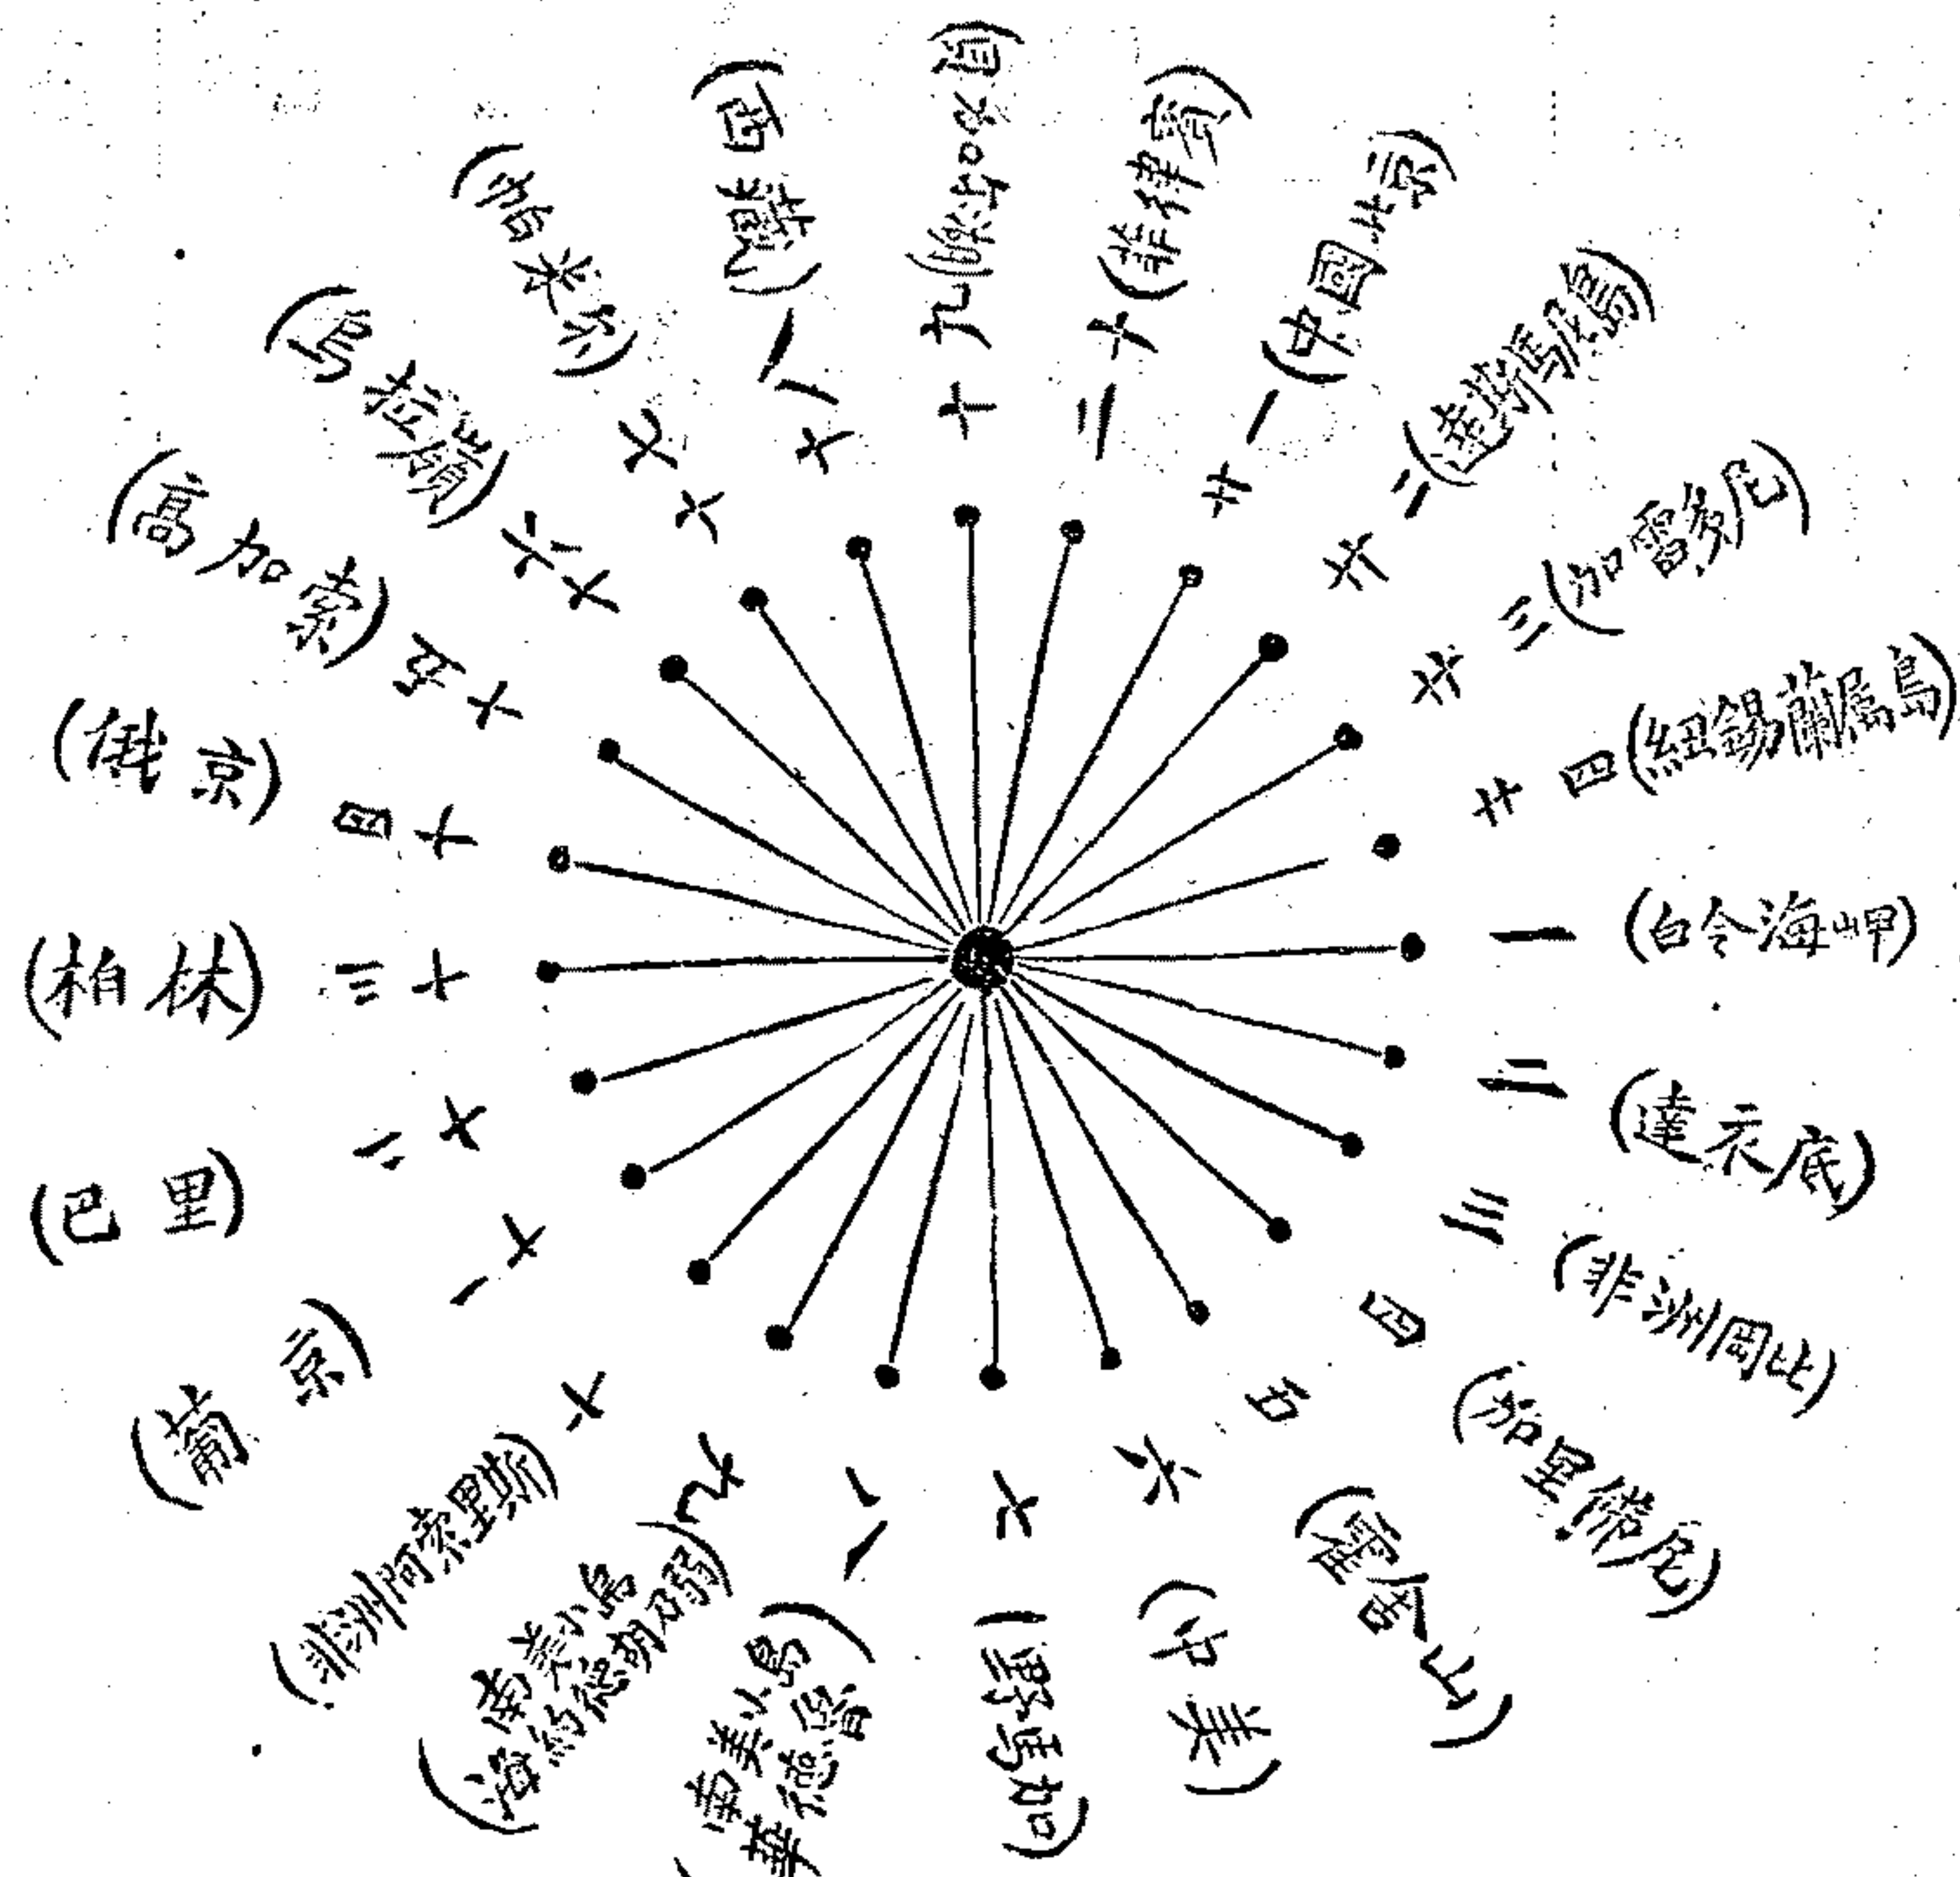 一 (白令海岬)
二 (達衣底)
三 (非洲岡比)
四 (加里 尼)
五 (露舍山)
六 (中美)
七
八 (南美小島
九 (南美小島
十 (非洲阿索里斯)
十一 (葡京)
十二 (巴里)
十三 (柏林)
十四 (俄京)
十五 (高加索)
十六 (烏拉嶺)
十七 (帕米尔)
十八 (西藏)
十九 (貝加尔湖)
二十 (菲律賓)
廿一 (中國北京)
廿二 (達斯馬尼島)
廿三 (加雷多尼)
廿四 (紐錫蘭屬島)